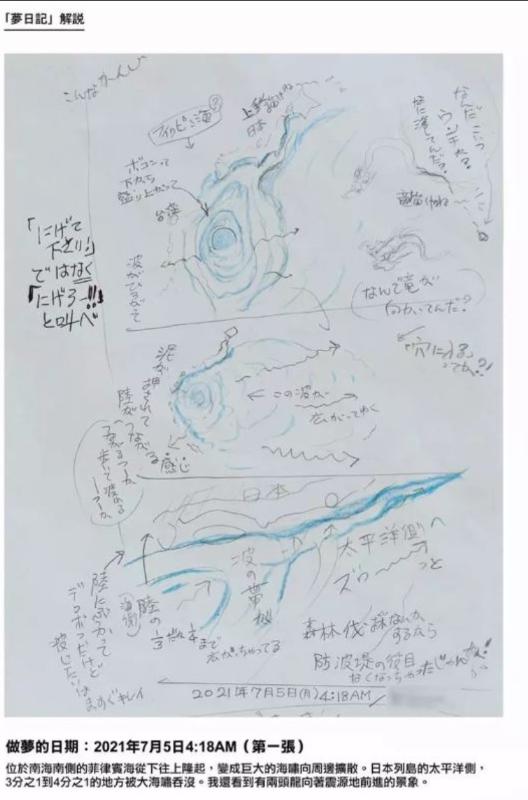 「夢日記」解説
こんなかーんじ
フィリピン海
?
上手く描けね
日本
ボコンって
下から
盛り上がって
台湾
波がひろがって
なんだこいつ
竜描くかね
なんで竜が
向かいてんだ?
「にげて
下さい!」
ではなく
「にげろー!!!
と叫べ
穴に入る
ってか?!
泥が
押されて
陸が
つながる
感じ
歩いて渡れる
この波が
広がってゆく
日本
太平洋側へ
ズゥーーっと
波の帯が
陸の
1/3
まで
広がっちゃってる
陸にぶつかって
デコボコだけど
まっすぐキレイ
森林伐採なんか
するから
防波堤の役目
なくなっちゃったじゃんか!
2021年7月5日(月)4:18AM
做夢的日期：2021年7月5日4:18AM（第一張）
位於南海南側的菲律賓海從下往上隆起，變成巨大的海嘯向周邊擴散。日本列島的太平洋側，
3分之1到4分之1的地方被大海嘯吞沒。我還看到有兩頭龍向著震源地前進的景象。